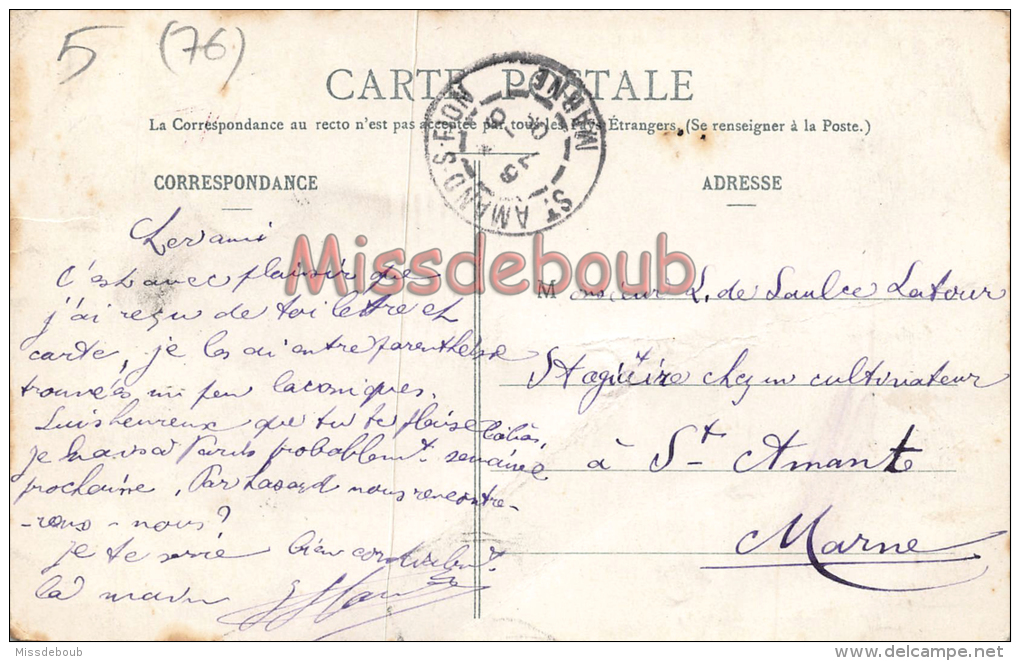 5 (76)
CARTE POSTALE
La Correspondance au recto n'est pas acceptée par tous les Pays Étrangers. (Se renseigner à la Poste.)
CORRESPONDANCE
Cher ami
C'est avec plaisir que
j'ai reçu de toi lettre et
carte, je les ai entre parenthèse
trouvés un peu laconiques.
Suis heureux que tu te plaise là bas,
je vais à Paris probablemt semaine
prochaine, Par hasard nous rencontre-
-rons-nous?
je te serre bien cordialemt
la main
ADRESSE
Monsieur L. de Saulce Latour
Stagiaire chez un cultivateur
à St Amant
Marne
ST AMAND-S-FION
MARNE
Missdeboub
Missdeboub
delcampe.net